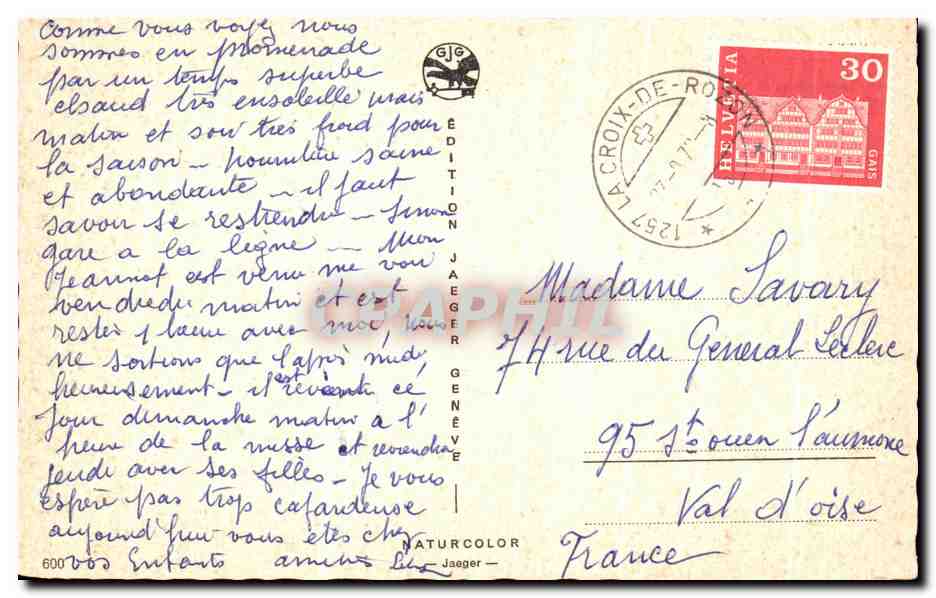 Comme vous voyez nous
sommes en promenade
par un temps superbe
chaud très ensoleillé mais
matin et soir très froid pour
la saison – nourriture saine
et abondante – il faut
savoir se restreindre – Sinon
gare a la ligne – Mon
Jeannot est venu me voir
vendredi matin et est
resté 1 heure avec moi, nous
ne sortions que l'après midi
heureusement – il est revenu ce
jour dimanche matin à l'
heure de la messe et reviendra
jeudi avec ses filles – Je vous
espère pas trop cafardeuse
aujourd'hui vous êtes chez
vos Enfants amitiés
GJG
ÉDITION JAEGER GENÈVE
NATURCOLOR
— Jaeger —
600
1257 LA CROIX-DE-ROZON
HELVETIA
30
GAIS
CPAPHIL
Madame Savary
74 rue du General Leclerc
95 St ouen l'aumone
Val d'oise
France